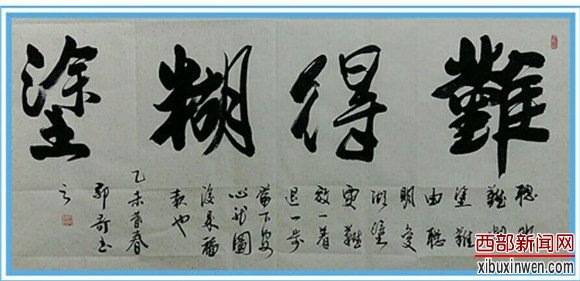 難得糊塗
聰明
難糊
塗難
由聰
明變
糊塗
更難
放一着
退一步
當下安
心非圖
後來福
報也
乙未春
郭书
西部新闻网
xibuxinwen.com